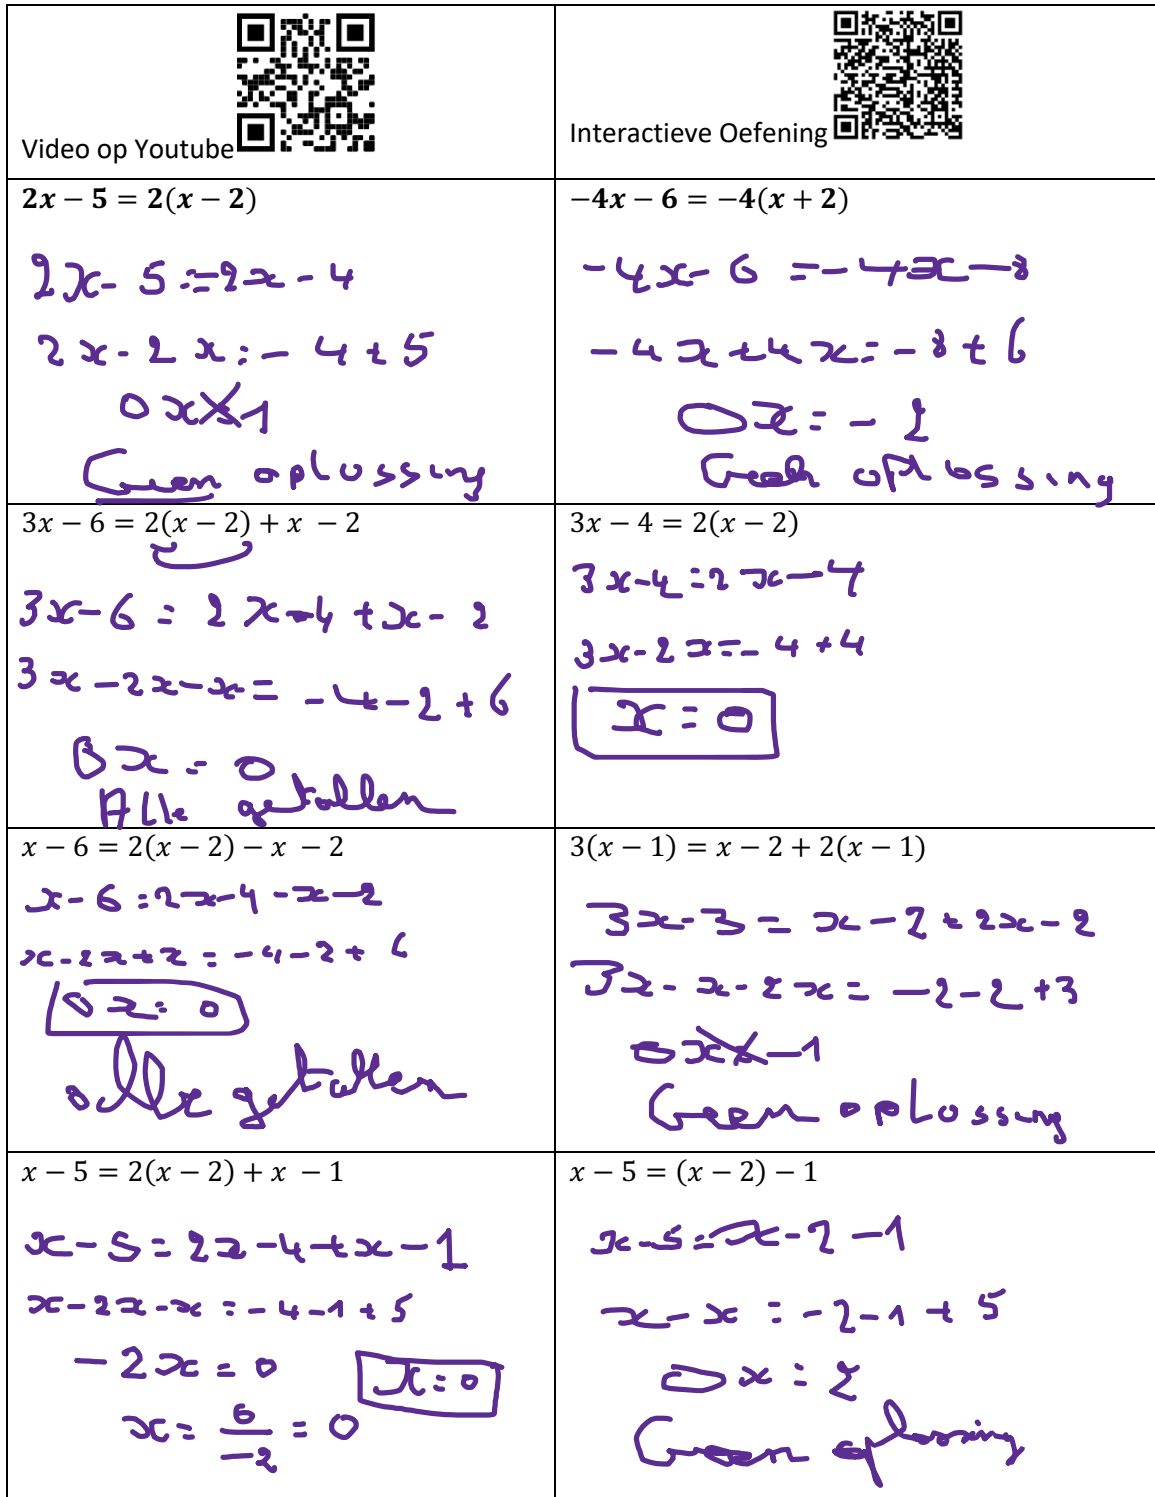 Video op Youtube
Interactieve Oefening
2x − 5 = 2(x − 2)
2x - 5 = 2x - 4
2x - 2x = - 4 + 5
0x = 1
Geen oplossing
−4x − 6 = −4(x + 2)
-4x - 6 = -4x - 8
-4x + 4x = -8 + 6
0x = -2
Geen oplossing
3x − 6 = 2(x − 2) + x − 2
3x - 6 = 2x - 4 + x - 2
3x - 2x - x = -4 - 2 + 6
0x = 0
Alle getallen
3x − 4 = 2(x − 2)
3x - 4 = 2x - 4
3x - 2x = -4 + 4
x = 0
x − 6 = 2(x − 2) − x − 2
x - 6 = 2x - 4 - x - 2
x - 2x + x = -4 - 2 + 6
0x = 0
alle getallen
3(x − 1) = x − 2 + 2(x − 1)
3x - 3 = x - 2 + 2x - 2
3x - x - 2x = -2 - 2 + 3
0x = -1
Geen oplossing
x − 5 = 2(x − 2) + x − 1
x - 5 = 2x - 4 + x - 1
x - 2x - x = -4 - 1 + 5
-2x = 0
x = 0
x = 0/-2 = 0
x − 5 = (x − 2) − 1
x - 5 = x - 2 - 1
x - x = -2 - 1 + 5
0x = 2
Geen oplossing